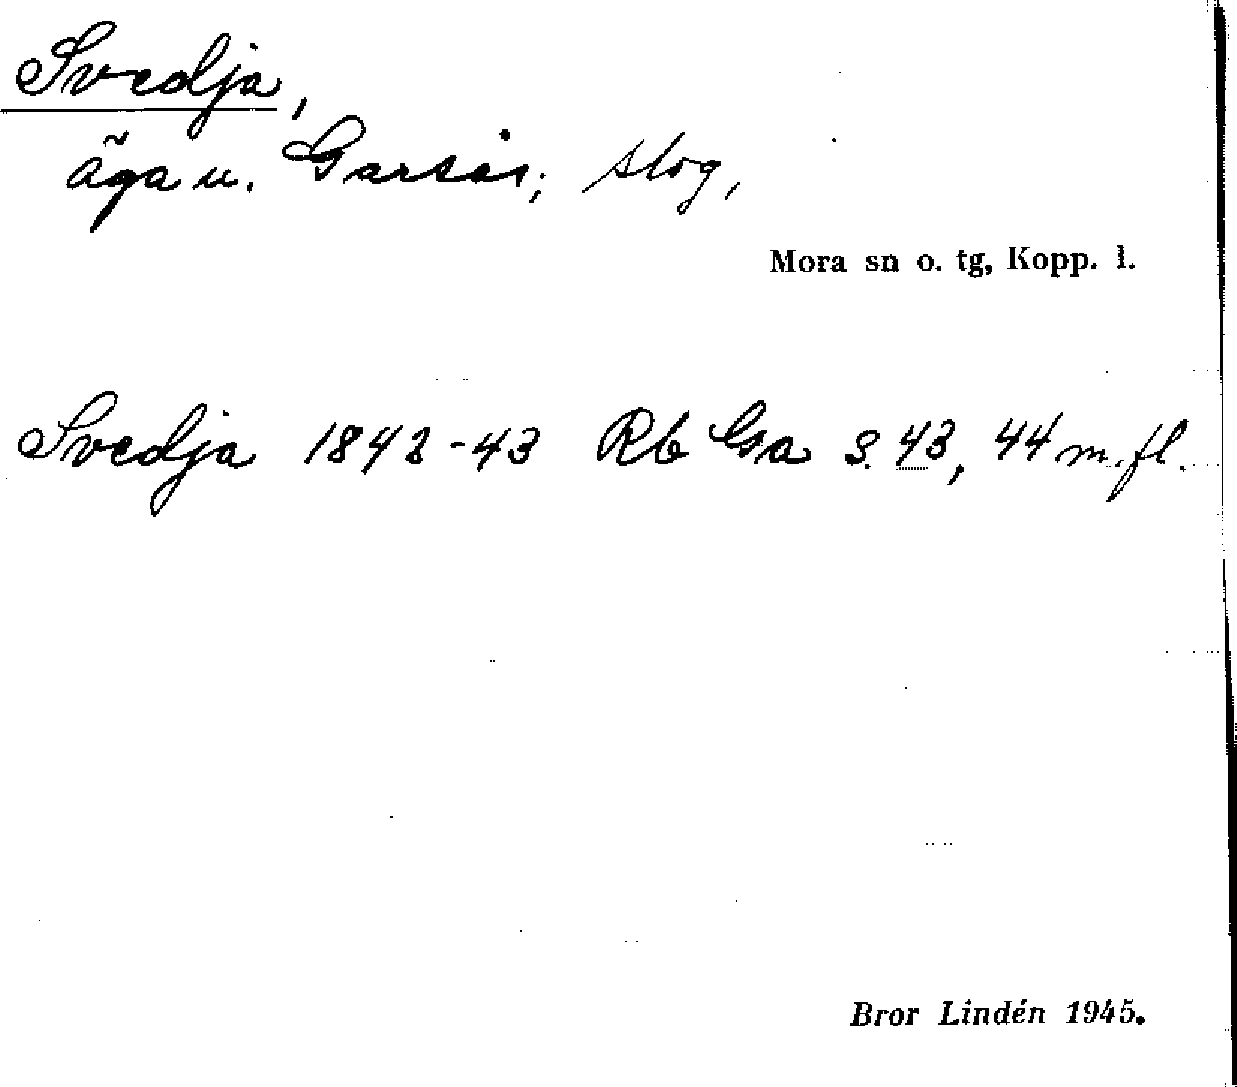 Svedja,
äga u. Garsås; slog,
Mora sn o. tg, Kopp. l.
Svedja 1842-43 Rb Ga s. 43, 44 m. fl.
Bror Lindén 1945.